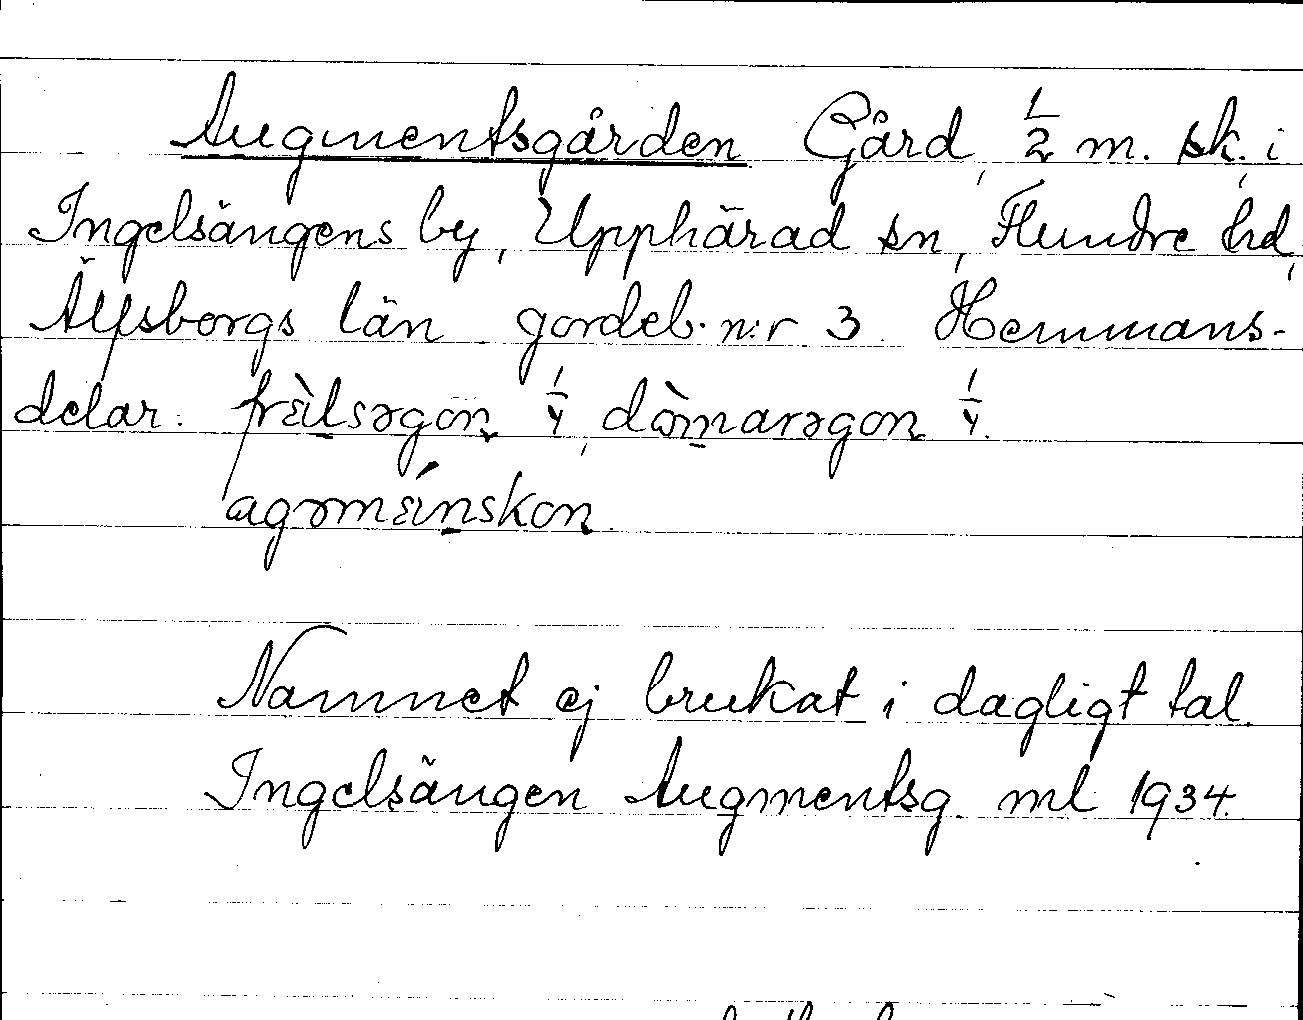 Augmentsgården Gård, 1/2 m. sk, i
Ingelsängens by, Upphärad sn, Flundre hd,
Älfsborgs län gordeb. n:r 3 Hemmans-
delar: frὲ̀lsəgon 1/4, dòmarəgon 1/4.
agəmέínskon.
Namnet ej brukat i dagligt tal.
Ingelsängen Augmentsg. ml 1934.